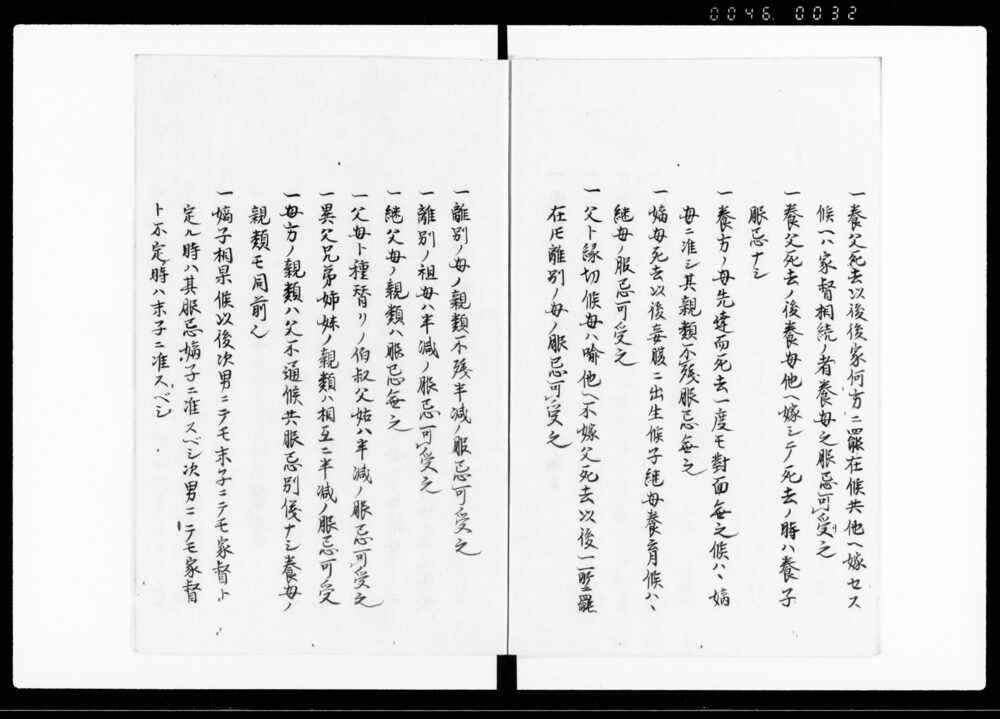 0046. 0032
一養父死去以後後家何方ニ罷在候共他ヘ嫁セス
候ヘハ家督相続ノ者養母之服忌可受之
一養父死去ノ後養母他ヘ嫁シテ死去ノ時ハ養子
服忌ナシ
一養方ノ母先達而死去一度モ對面無之候ハヽ嫡
母ニ准シ其親類不残服忌無之
一嫡母死去以後妾服ニ出生候子継母養育候ハヽ
継母ノ服忌可受之
一父ト縁切候母ハ喩他ヘ不嫁父死去以後一所罷
在トモ離別ノ母ノ服忌可受之
一離別ノ母ノ親類不残半減ノ服忌可受之
一離別ノ祖母ハ半減ノ服忌可受之
一継父母ノ親類ハ服忌無之
一父母ト種替リノ伯叔父姑ハ半減ノ服忌可受之
一異父兄弟姉妹ノ親類ハ相互ニ半減ノ服忌可受
一母方ノ親類ハ父不通候共服忌別儀ナシ養母ノ
親類モ同前之
一嫡子相果候以後次男ニテモ末子ニテモ家督ト
定ル時ハ其服忌嫡子ニ准スベシ次男ニテモ家督
ト不定時ハ末子ニ准スベシ